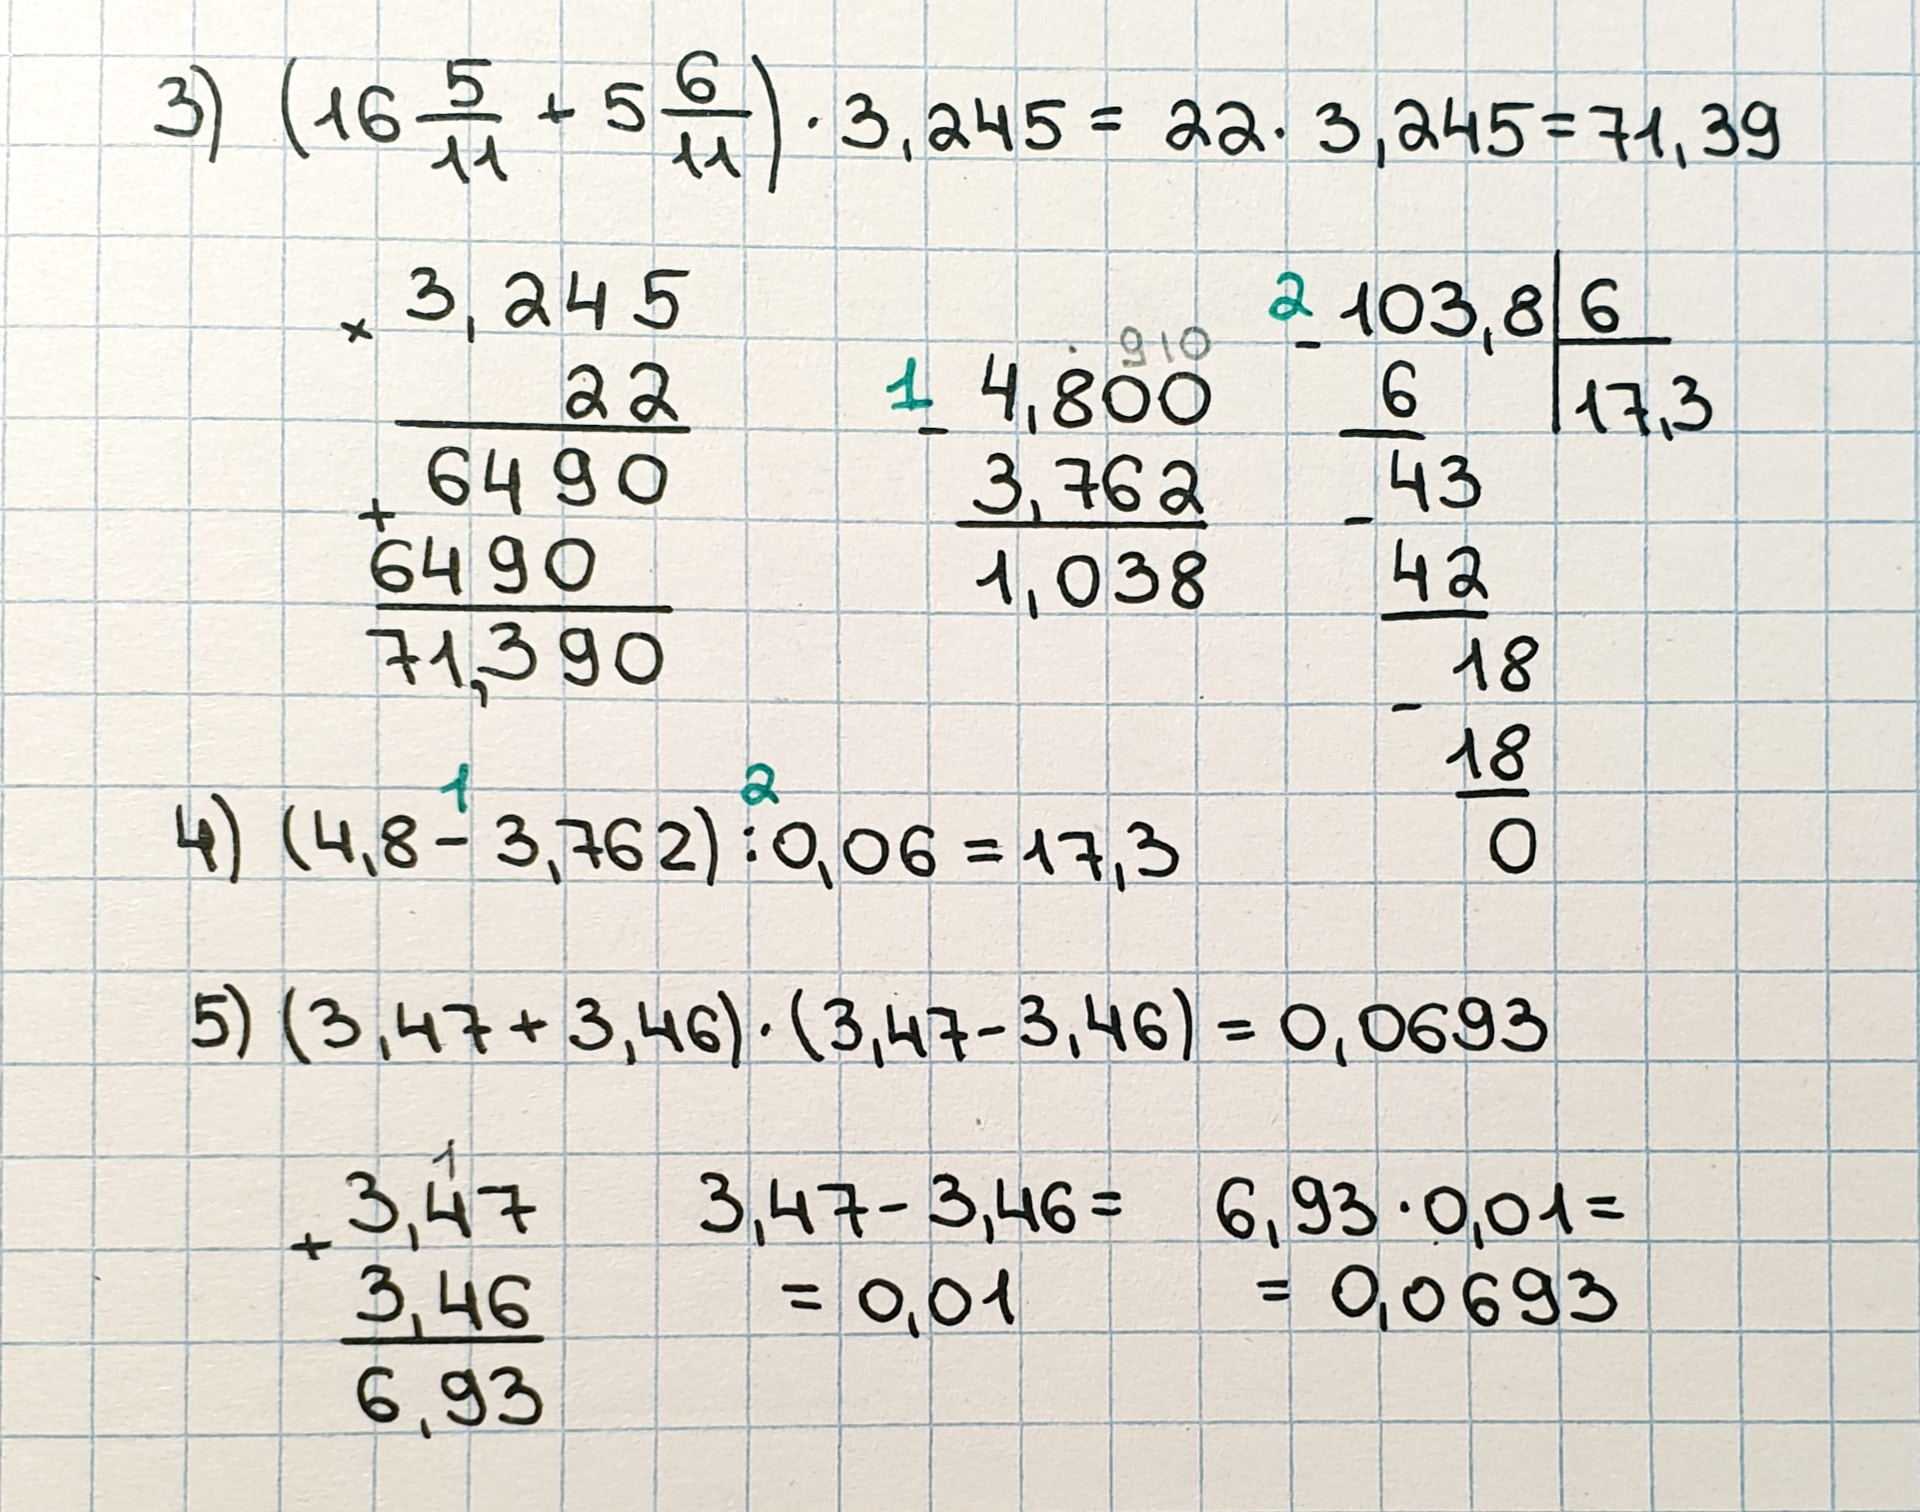 3) (16 5/11 + 5 6/11) · 3,245 = 22 · 3,245 = 71,39
× 3,245
22
6490
+
6490
71,390
9 10
1 - 4,800
3,762
1,038
2 - 103,8 | 6
6 17,3
43
- 42
18
- 18
0
1 2
4) (4,8 - 3,762) : 0,06 = 17,3
5) (3,47 + 3,46) · (3,47 - 3,46) = 0,0693
1
+ 3,47
3,46
6,93
3,47 - 3,46 =
= 0,01
6,93 · 0,01 =
= 0,0693